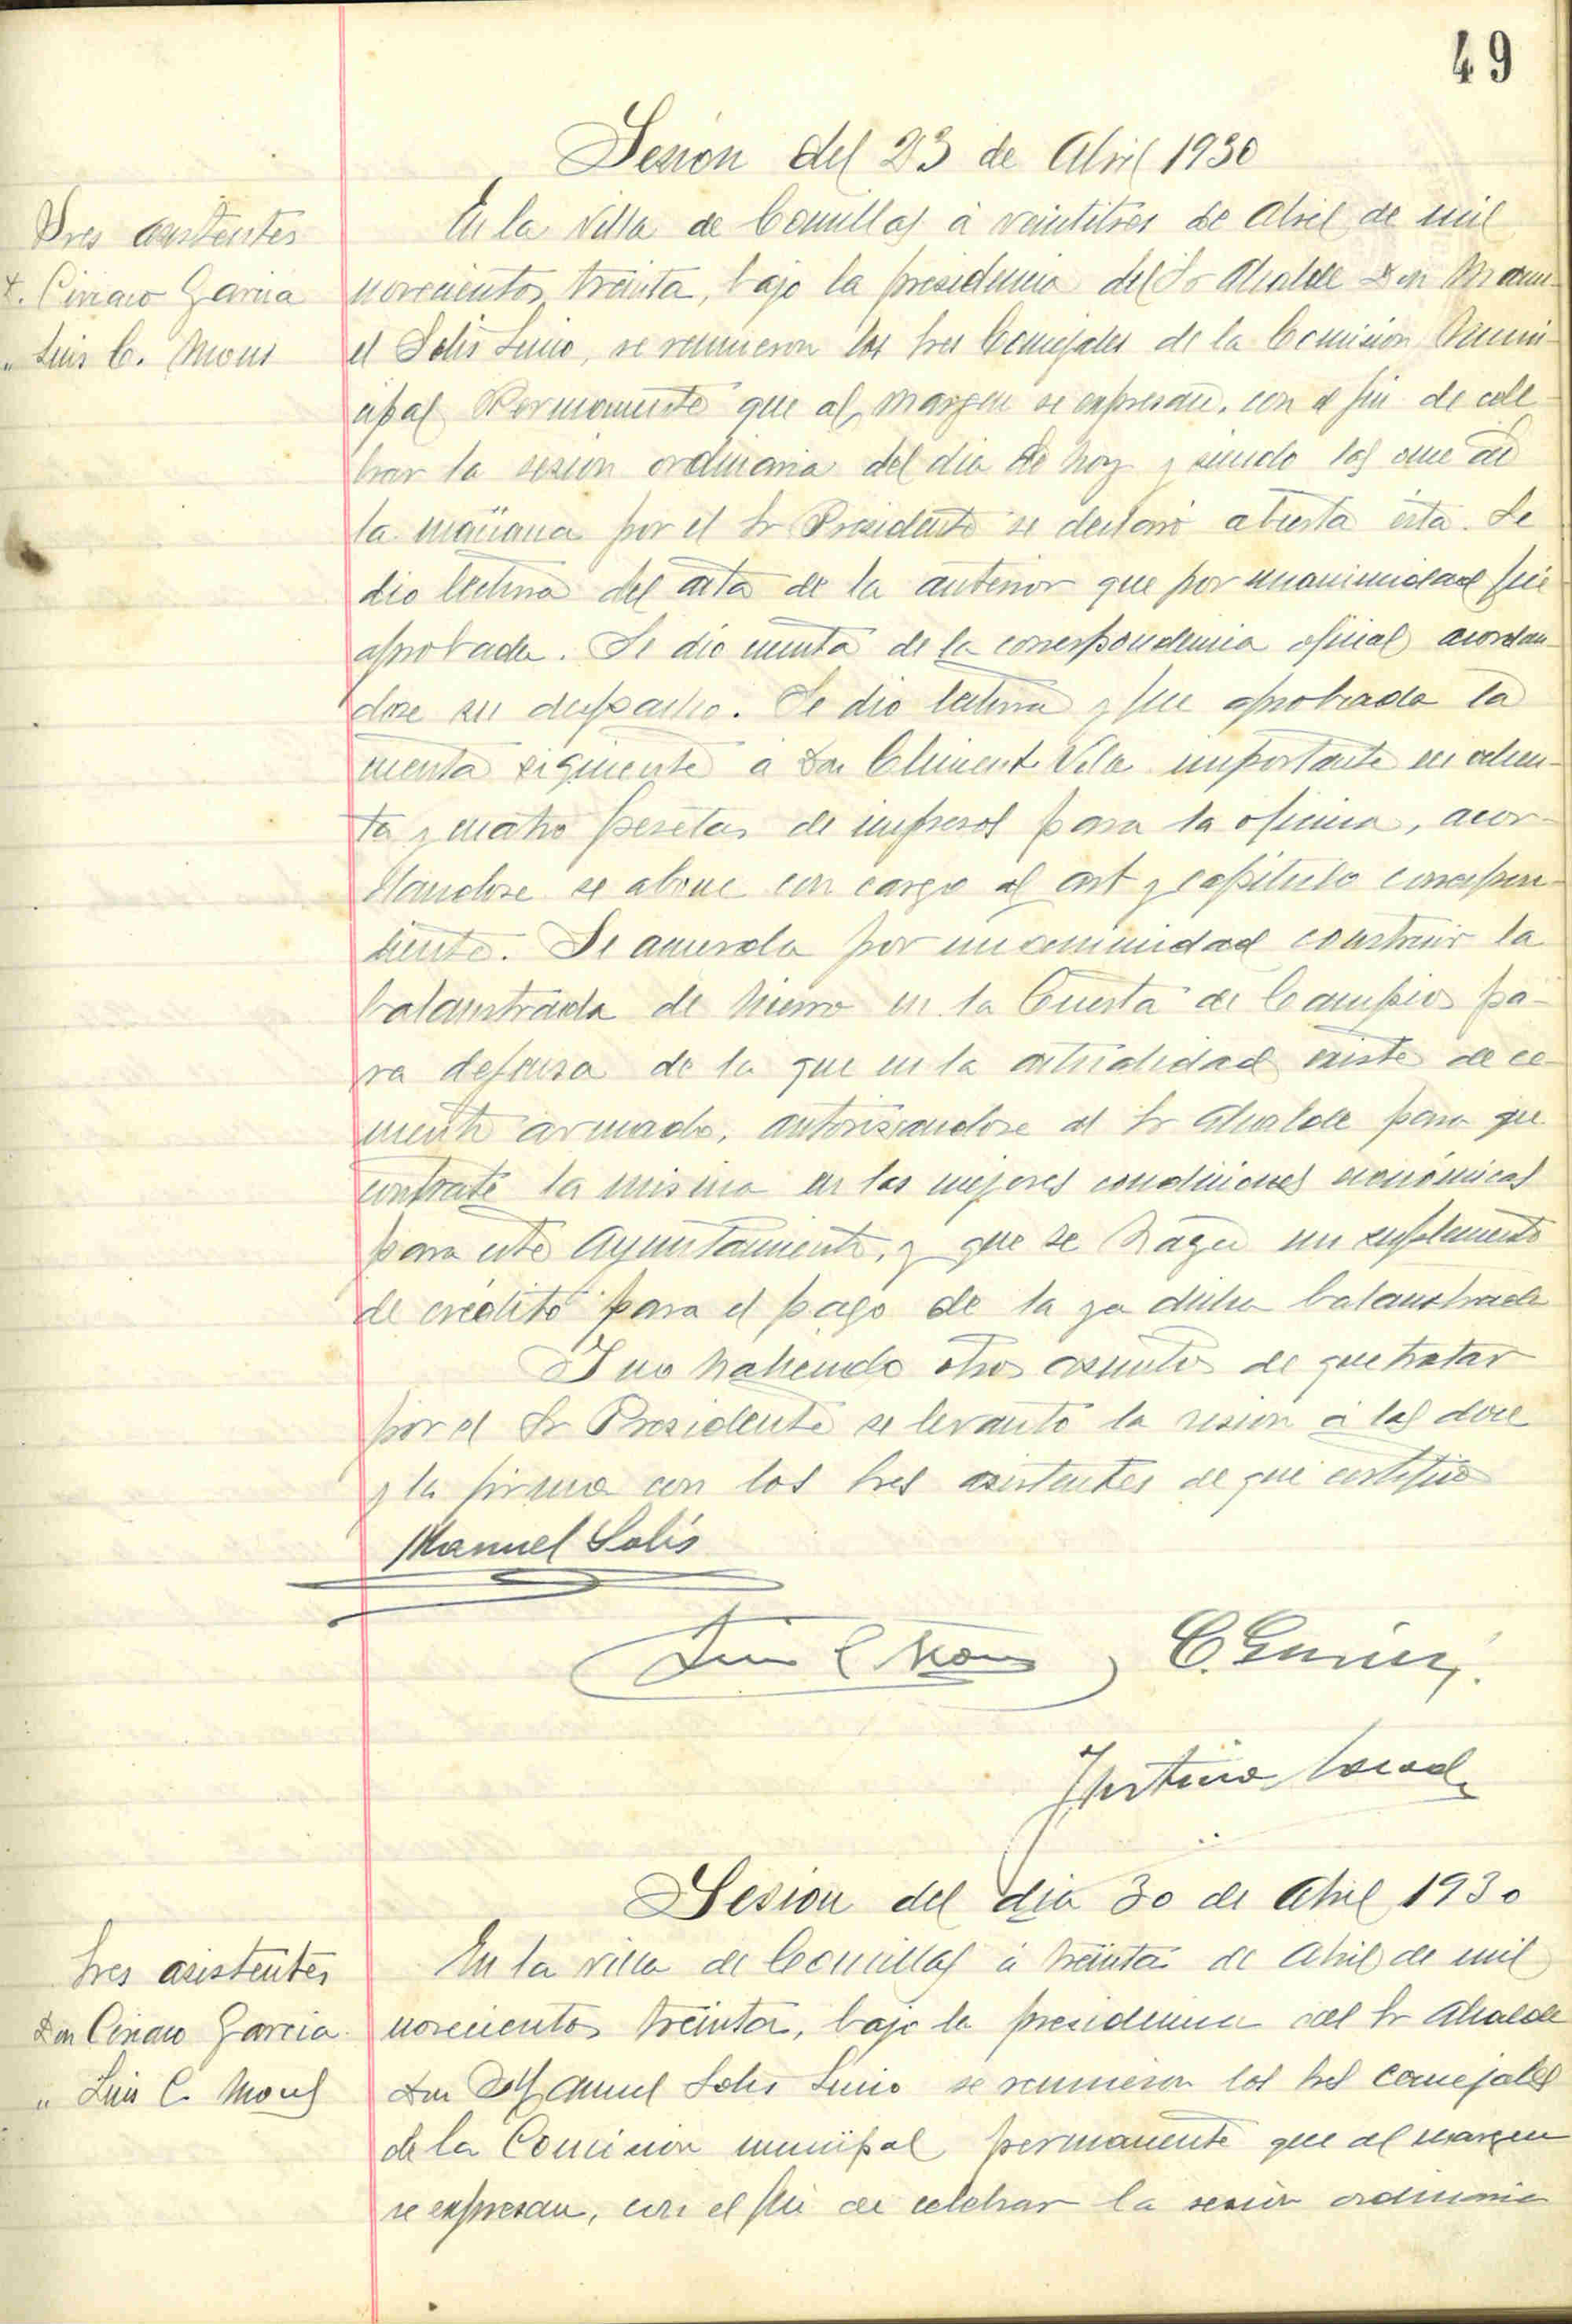 49
Sesión del 23 de Abril 1930
Sres asistentes
D. Ciriaco Garcia
" Luis C. Mons
En la Villa de Comillas á veintitres de Abril de mil
novecientos treinta, bajo la presidencia del Sr Alcalde Don Manu-
el Solis, se reunieron los Sres Concejales de la Comision Muni-
cipal Permanente que al margen se expresan, con el fin de cele-
brar la sesion ordinaria del dia de hoy y siendo las once de
la mañana por el Sr Presidente se declaró abierta ésta. Se
dio lectura del acta de la anterior que por unanimidad fué
aprobada. Se dio cuenta de la correspondencia oficial acordan-
dose su despacho. Se dio lectura y fue aprobada la
cuenta siguiente á Don Climent Vila importante en ochen-
ta y cuatro pesetas de impresos para la oficina, acor-
dandose se abone con cargo al art y capitulo correspon-
diente. Se acuerda por unanimidad construir la
balaustrada de hierro en la Cuesta de Campios pa-
ra defensa de la que en la actualidad existe de ce-
mento armado, autorizandose al Sr Alcalde para que
contrate la misma en las mejores condiciones económicas
para este Ayuntamiento, y que se haga un suplemento
de crédito para el pago de la ya dicha balaustrada
Y no habiendo otros asuntos de que tratar
por el Sr Presidente se levantó la sesion á las doce
y la firma con los Sres asistentes de que certifico
Manuel Solís
Luis C Mons C. García
Sesion del dia 30 de Abril 1930
Sres asistentes
Don Ciriaco Garcia
" Luis C. Mons
En la villa de Comillas á treinta de Abril de mil
novecientos treinta, bajo la presidencia del Sr Alcalde
Don Manuel Solis se reunieron los Sres Concejales
de la Comision municipal permanente que al margen
se expresan, con el fin de celebrar la sesión ordinaria